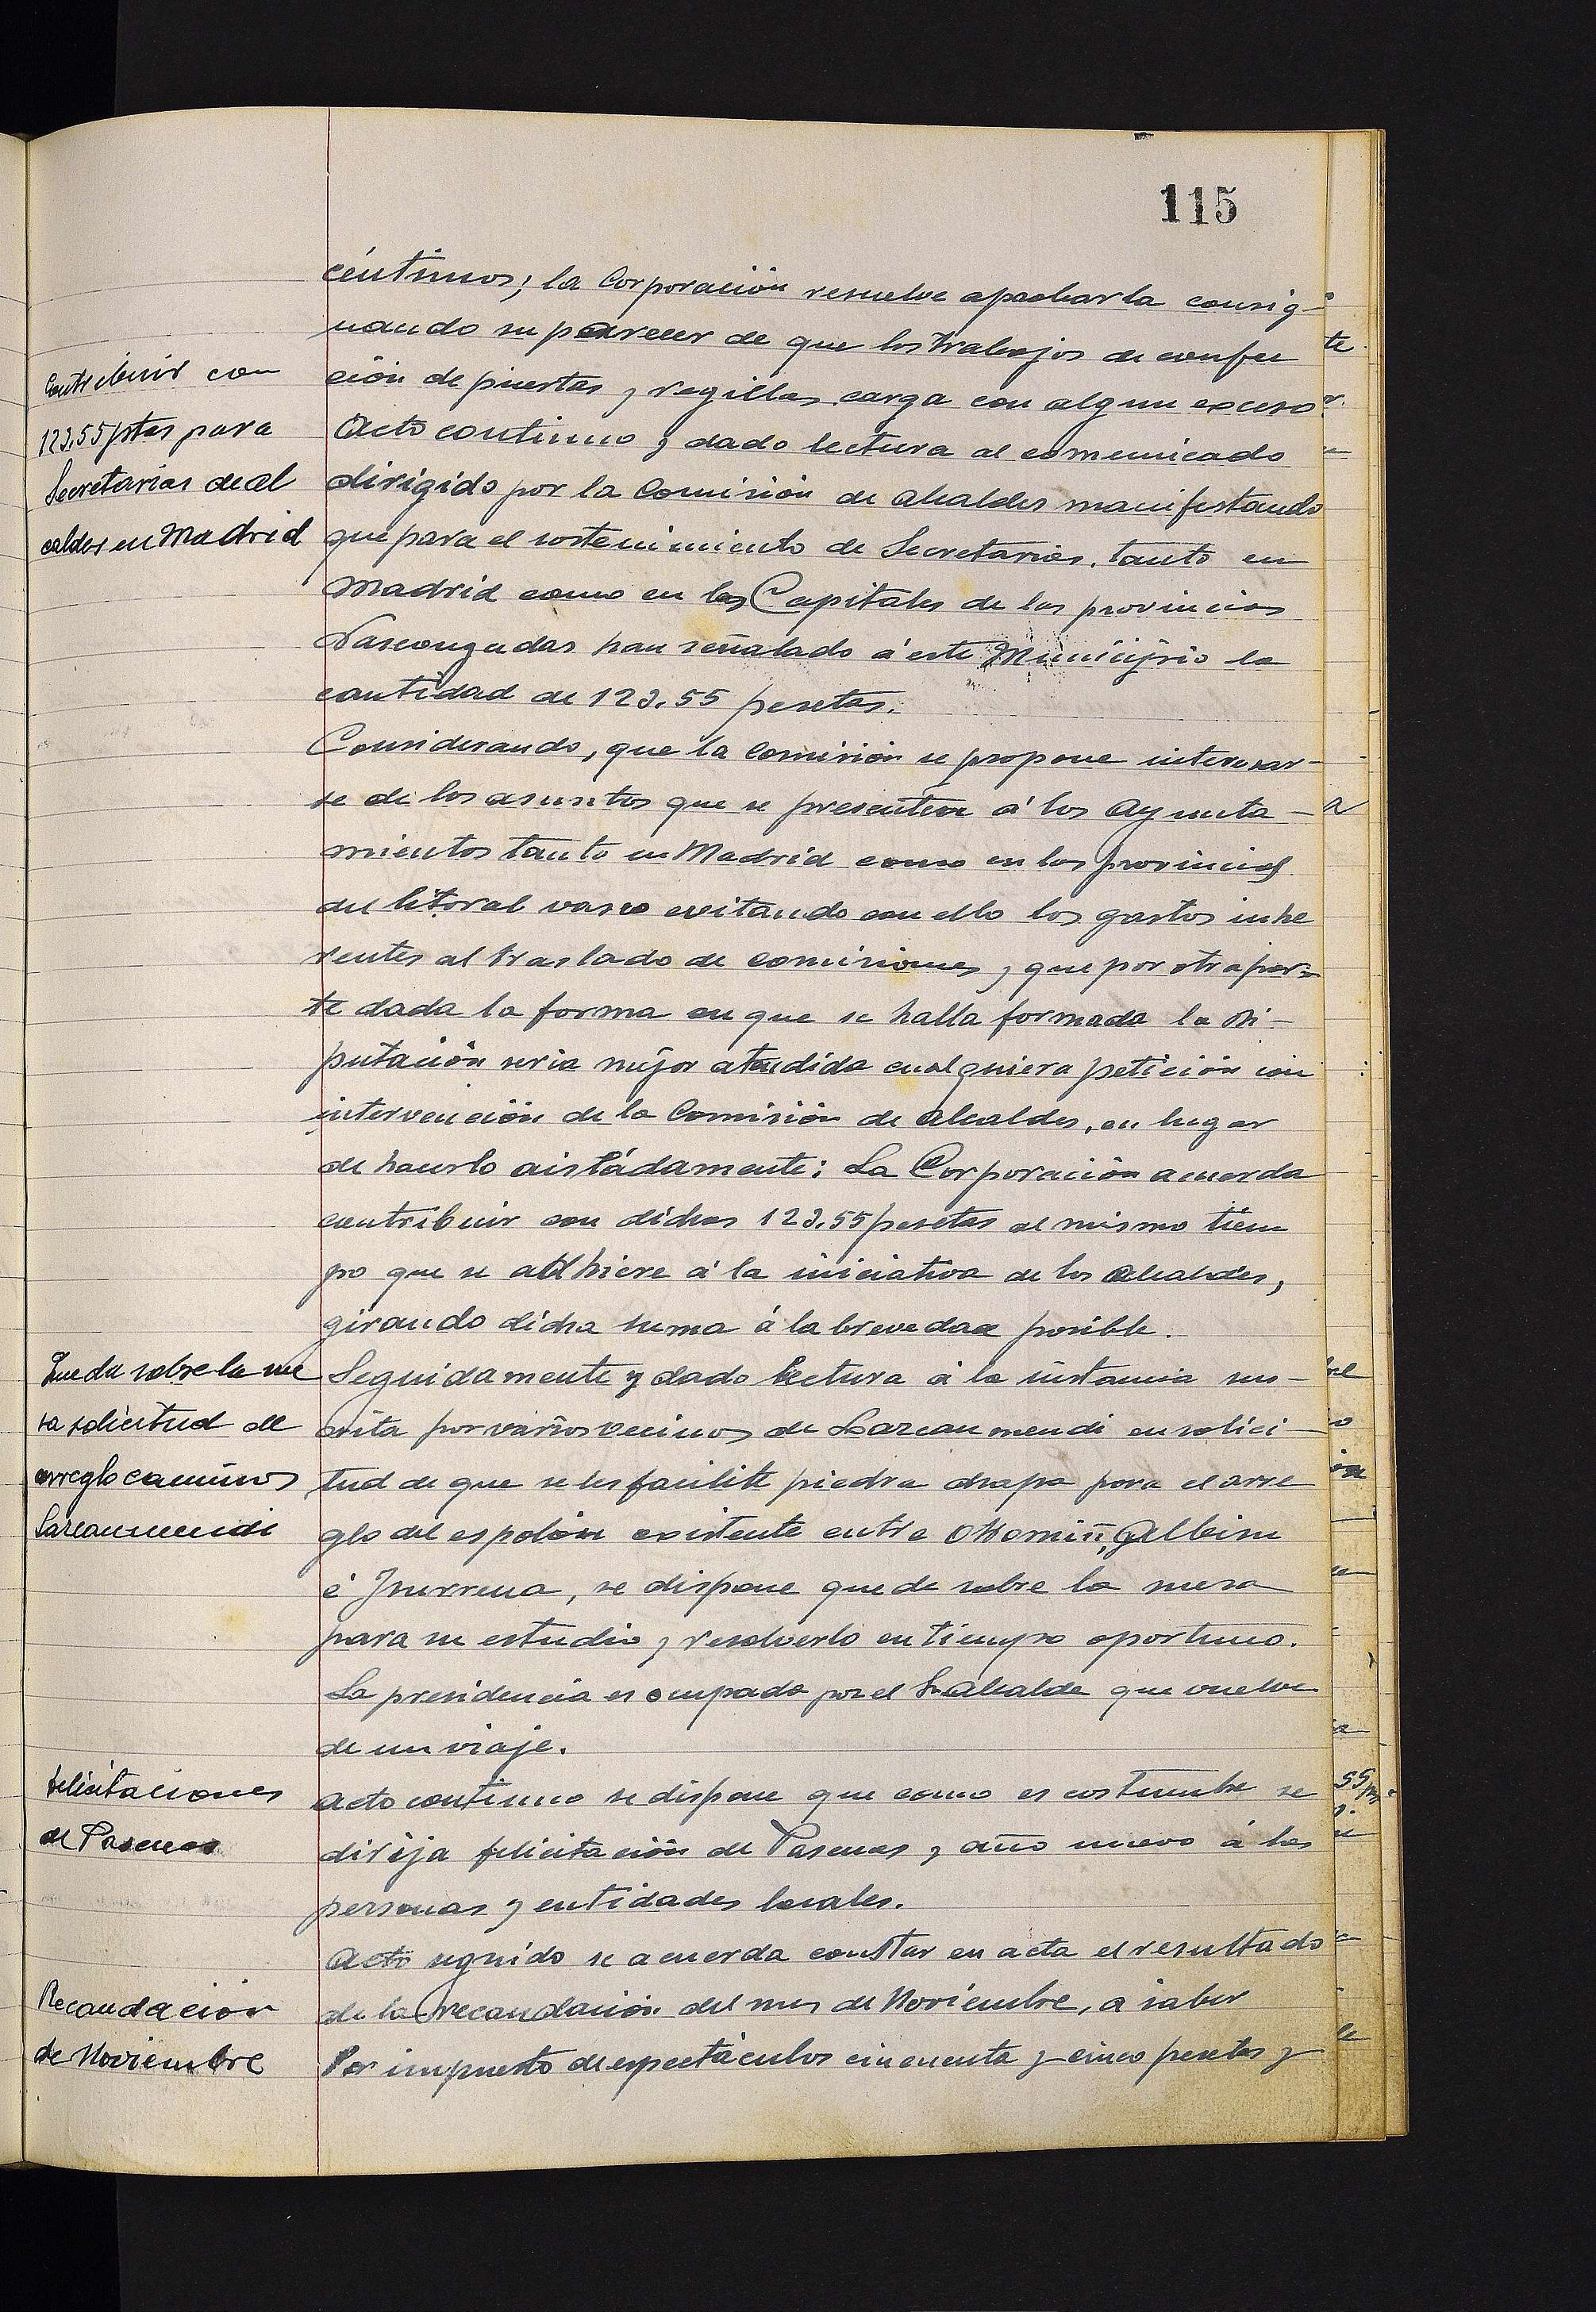 115
céntimos; la Corporación resuelve aprobarla consig-
nando su parecer de que los trabajos de confec
ción de puertas y regillas carga con algun exceso
Contribuir con
123,55 ptas para
Secretarias de al
caldes en Madrid
Acto continuo y dado lectura al comunicado
dirigido por la Comisión de Alcaldes manifestando
que para el sostenimiento de Secretarias, tanto en
Madrid como en las Capitales de las provincias
Vascongadas han señalado á este Municipio la
cantidad de 123,55 pesetas.
Considerando, que la Comisión se propone interesar-
se de los asuntos que se presenten á los Ayunta-
mientos tanto en Madrid como en las provincias
del litoral vasco evitando con ello los gastos inhe
rentes al traslado de comisiones y que por otra par-
te dada la forma en que se halla formada la Di-
putación seria mejor atendida cualquiera petición con
intervención de la Comisión de Alcaldes, en lugar
de hacerlo aisládamente: La Corporación acuerda
contribuir con dichas 123,55 pesetas al mismo tiem
po que se adhiere á la iniciativa de los Alcaldes,
girando dicha suma á la brevedad posible.
Queda sobre la me
sa solicitud de
arreglo caminos
Lazcanmendi
Seguidamente y dado lectura á la instancia sus-
crita por varios vecinos de Lazcanmendi en solici-
tud de que se les facilite piedra chapa para el arre
glo del espolón existente entre Okomiñ, Albisu
é Inurrena, se dispone quede sobre la mesa
para su estudio y resolverlo en tiempo oportuno.
La presidencia es ocupada por el Sr Alcalde que vuelve
de un viaje.
felicitaciones
de Pascuas
Acto continuo se dispone que como es costumbre se
dirija felicitación de Pascuas y año nuevo á las
personas y entidades locales.
Recaudación
de Noviembre
Acto seguido se acuerda constar en acta el resultado
de la recaudación del mes de Noviembre, a saber
Por impuesto de espectáculos cincuenta y cinco pesetas y